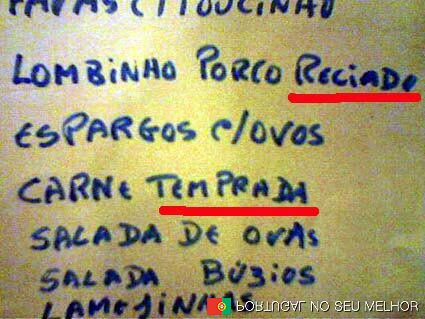 FAVAS C/TOUCINHO
LOMBINHO PORCO RECIADO
ESPARGOS C/OVOS
CARNE TEMPRADA
SALADA DE OVAS
SALADA BÚZIOS
LAMEJINHAS
PORTUGAL NO SEU MELHOR